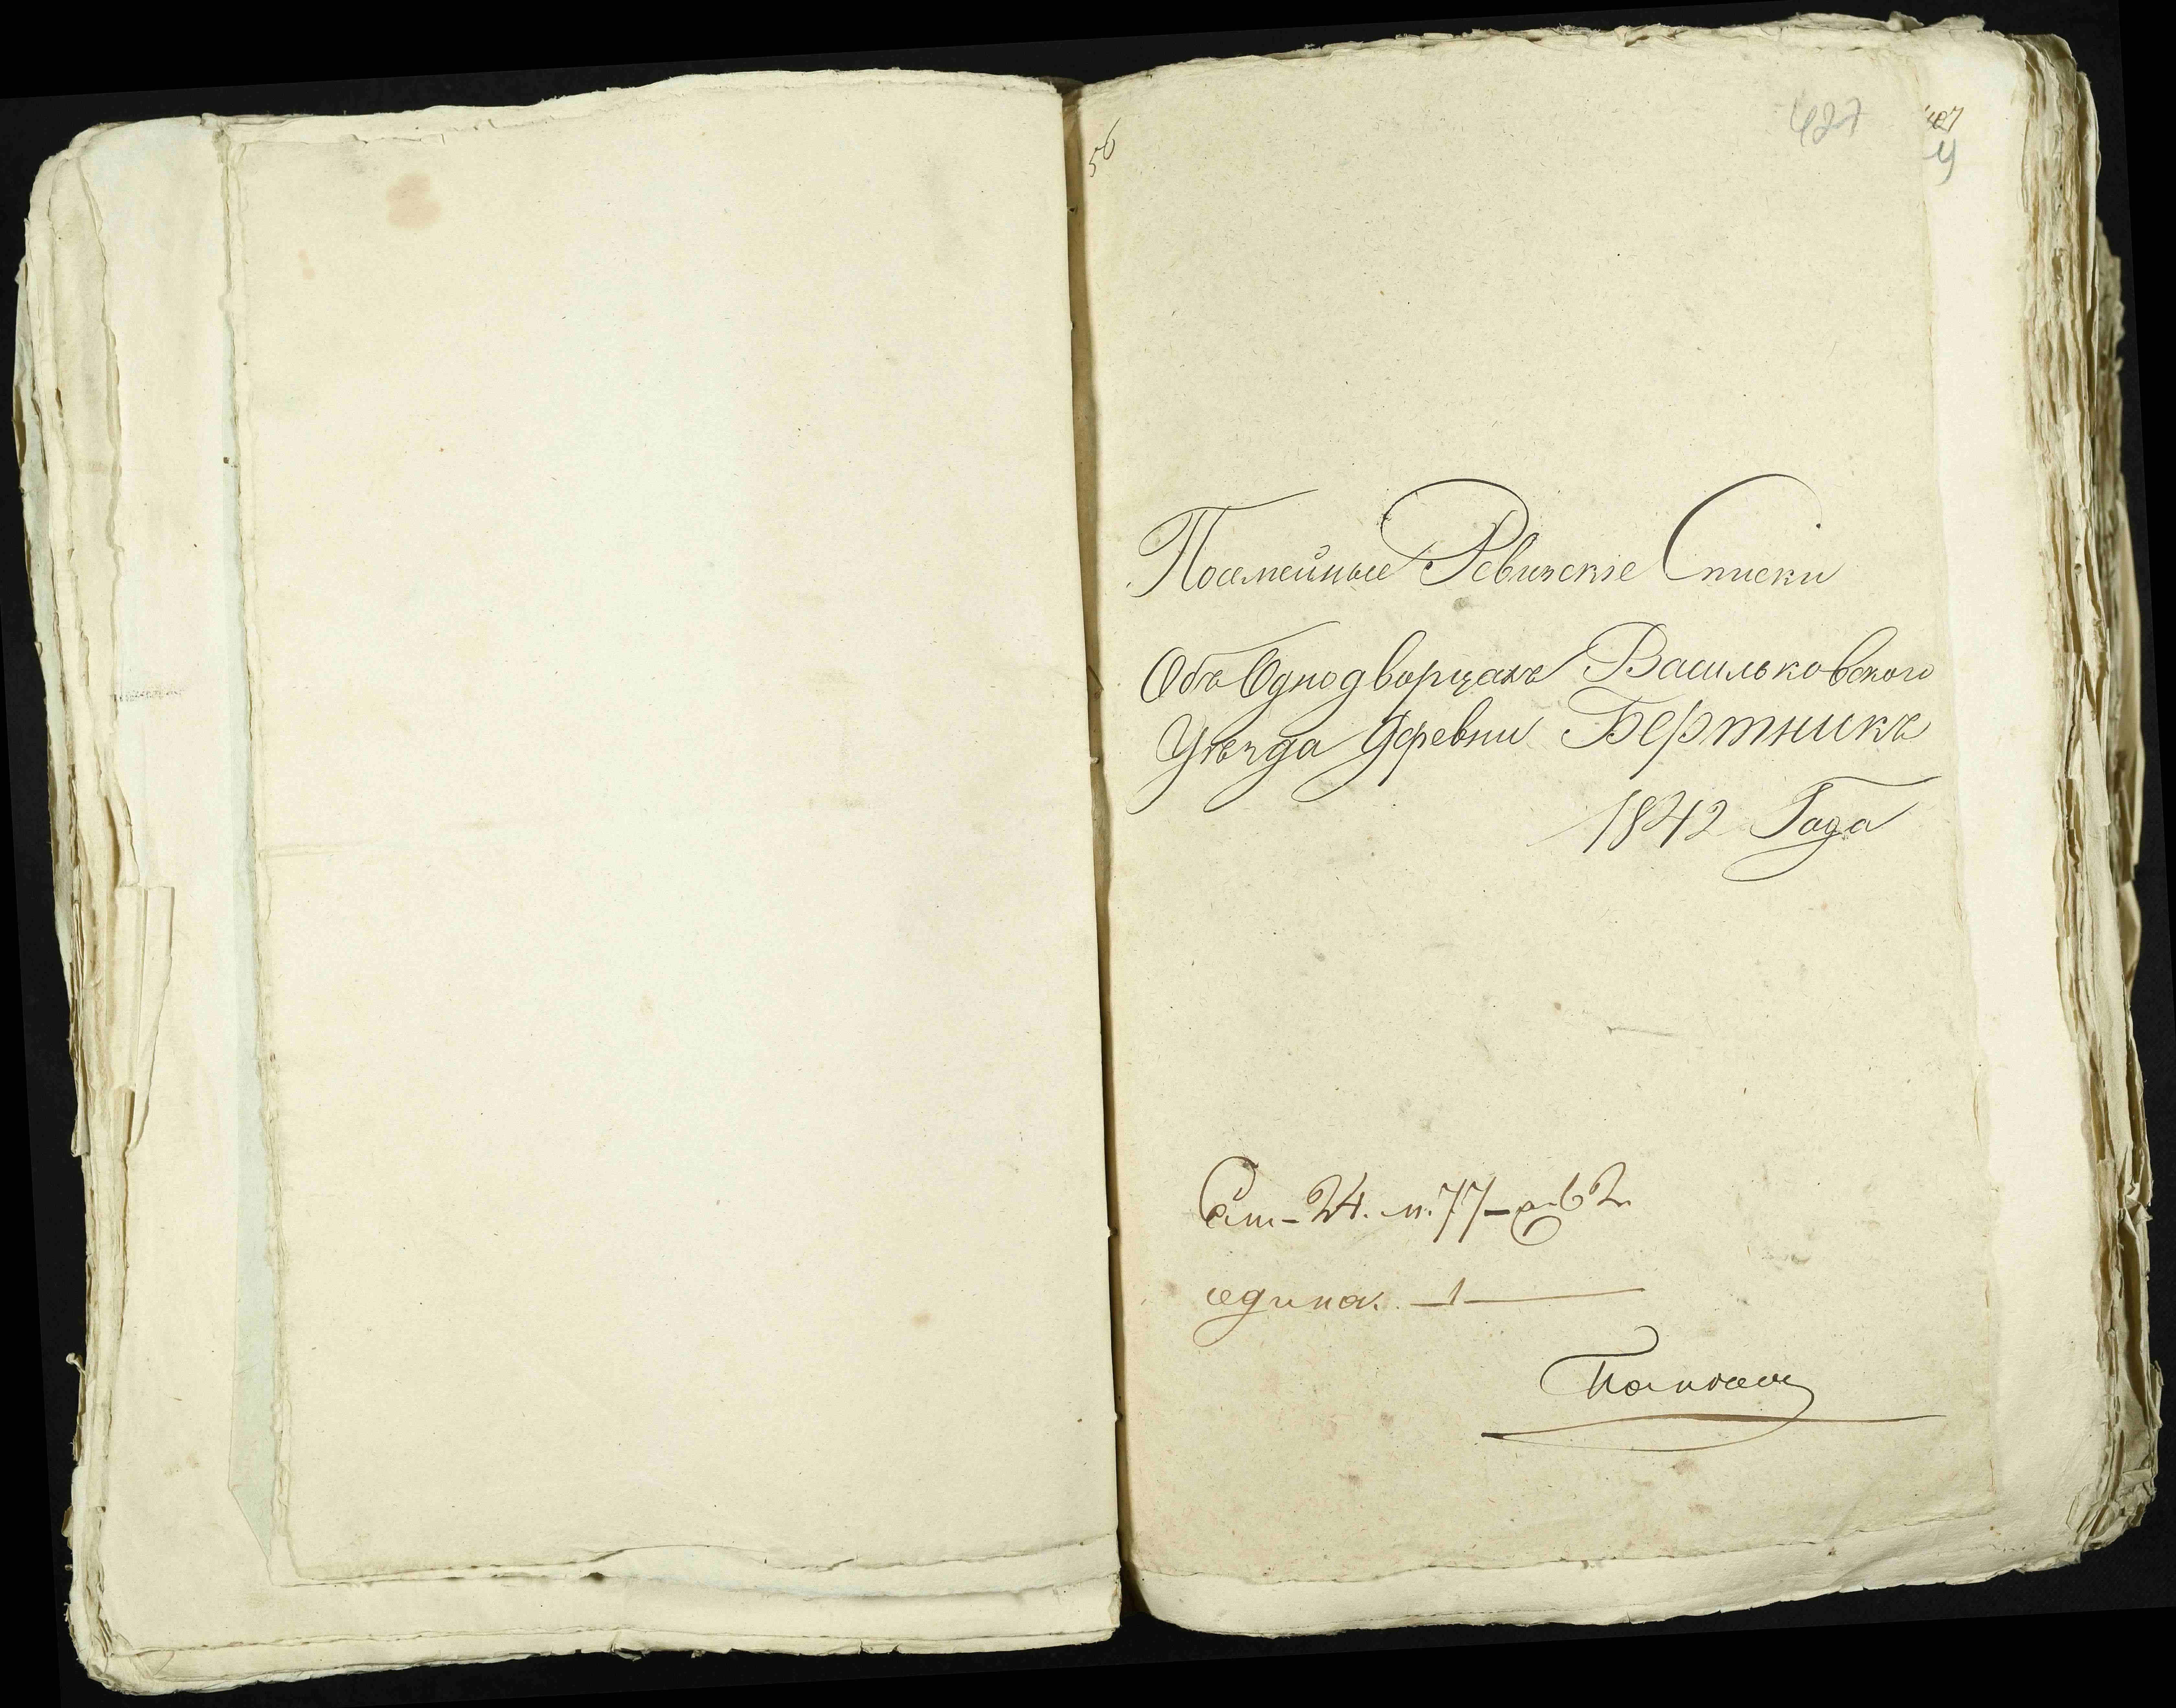 56
427
427
4
Посемейные Ревизскіе Списки
Объ Однодворцахъ Васильковского
Уѣзда Деревни Бертникъ
1842 Года
Сем - 24. м. 77 - ж 62
едина. - 1 -